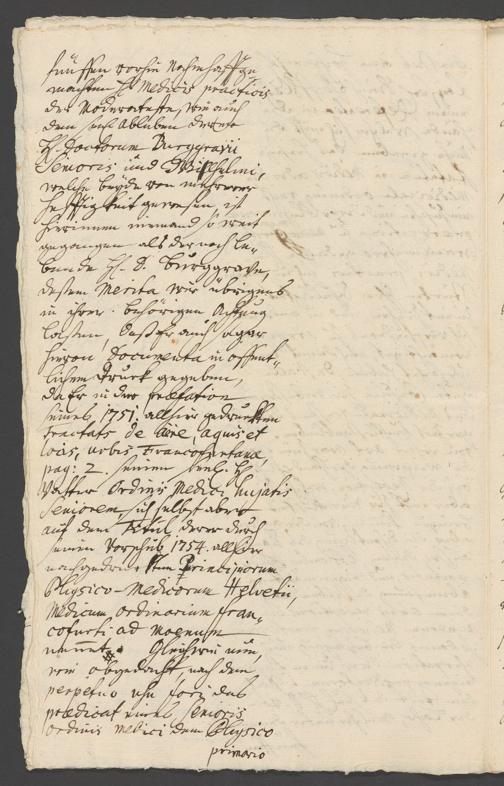 machten H. Medicis practicis
der Noderatesse, wie auch
dem Ableben derer
H. Doctorum Burggravii
Senioris und Wilhelmi,
welche beyde von mehrerer
gewesen, ist
hierinnen niemand so weit
gegangen als der noch le-
bende H. D. Burggrave,
dessen Merita wir übrigens
in ihrer behörigen Achtung
lassen, daß Er auch sogar
hievon Documenta in offent-
lichem Druck gegeben,
da Er in der Præfation
seines 1751. allhier gedruckten
Tractats de aere, aquis et
locis, urbis Francofurtanæ,
pag: 2. seinen seel. H.
Vatter Ordinis Medici hujatis
Seniorem, sich selbst aber
auf dem Titul derer durch
seinen Vorschub 1754. allhier
Principiorum
Physico-Medicorum Helvetii,
Medicum ordinarium Fran-
cofurti ad Moenum
nennt. Gleichwie nun,
wie obgedacht, nach dem
perpetuo usu fori das
prædicat eines Senioris
ordinis medici dem Physico
primario